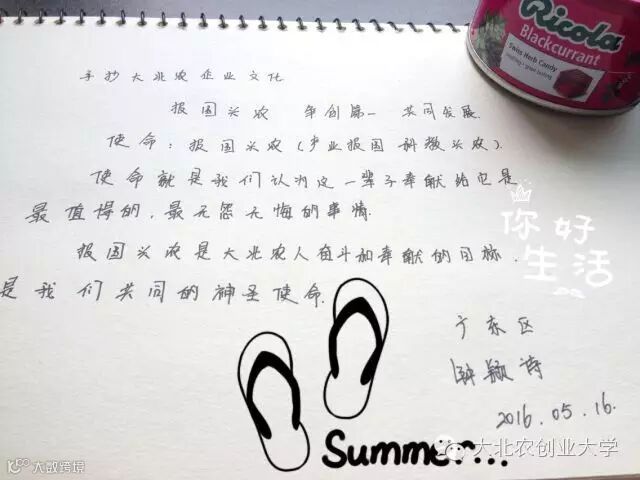 Ricola
Blackcurrant
Swiss Herb Candy
手抄大北农企业文化
报国兴农 争创第一 共同发展.
使命：报国兴农(产业报国 科教兴农).
使命就是我们认为这一辈子奉献给它是
最值得的，最无怨无悔的事情.
报国兴农是大北农人奋斗和奉献的目标，
是我们共同的神圣使命.
你好
生活
广东区
颖诗
2016.05.16.
Summer...
大北农创业大学
大数跨境